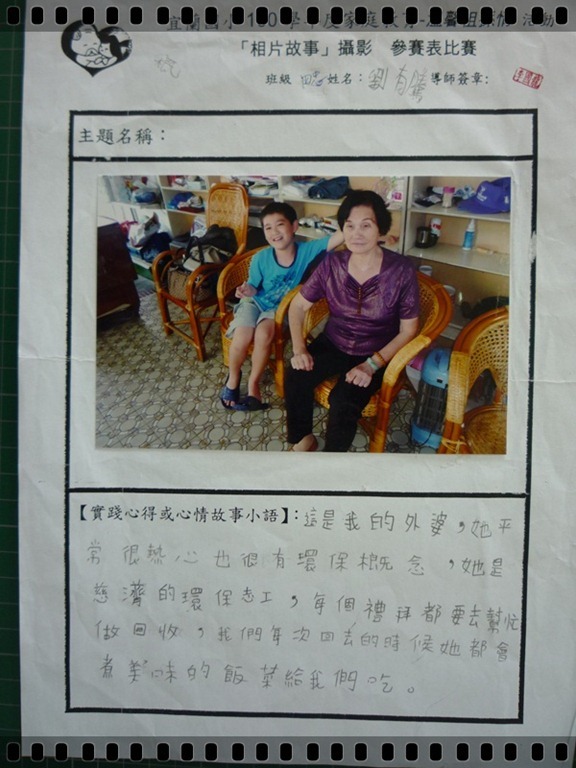 宜蘭國小100學年度家庭教育-
活動
「相片故事」攝影 參賽表比賽
班級 姓名：劉有騰 導師簽章：
主題名稱：
【實踐心得或心情故事小語】：這是我的外婆，她平
常很熱心也很有環保概念，她是
慈濟的環保志工，每個禮拜都要去幫忙
做回收，我們每次回去的時候她都會
煮美味的飯菜給我們吃。